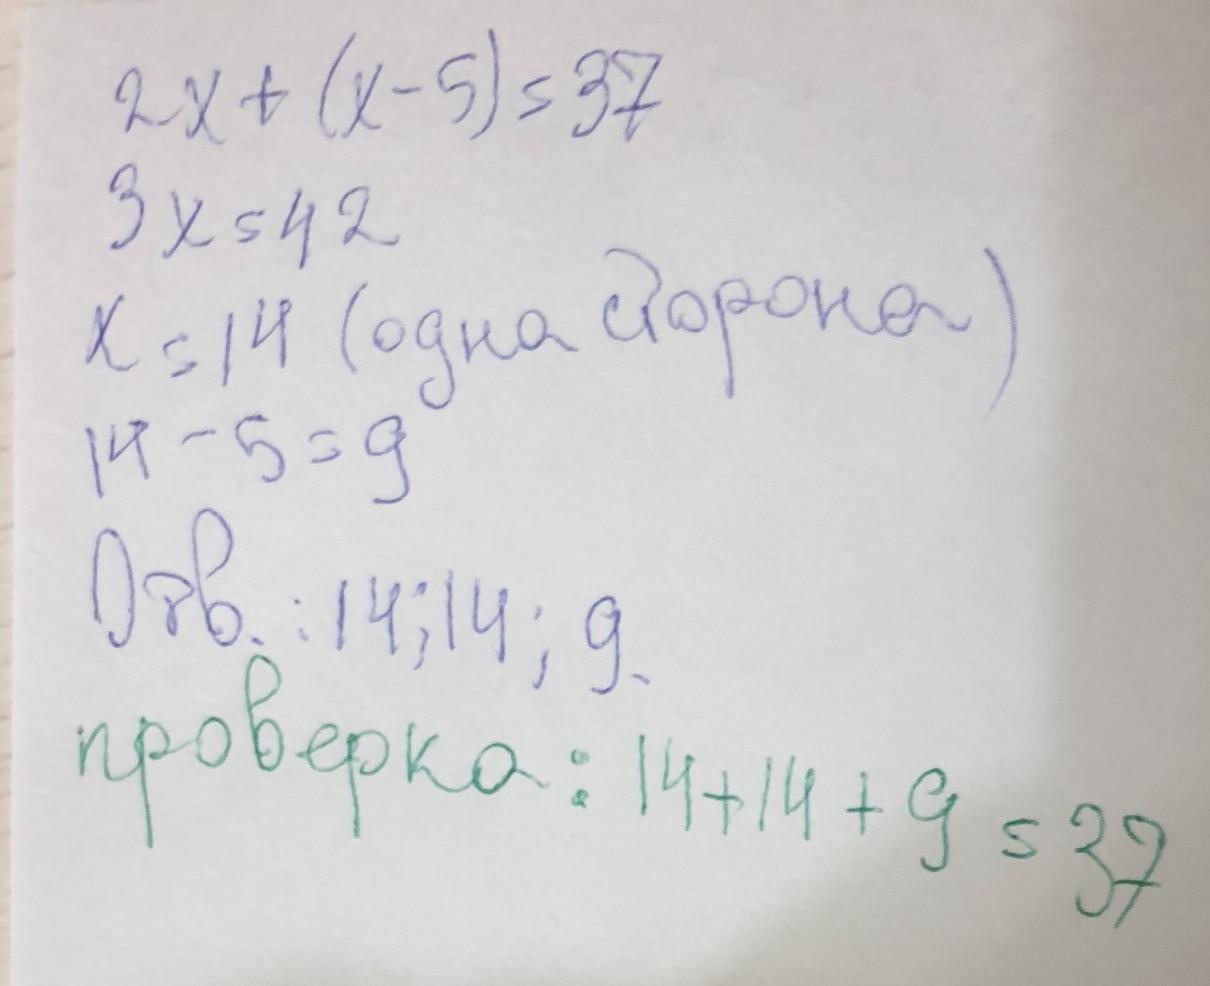 2x+(x-5)=37
3x=42
x=14 (одна сторона)
14-5=9
Отв.:14;14; 9.
проверка: 14+14+9=37